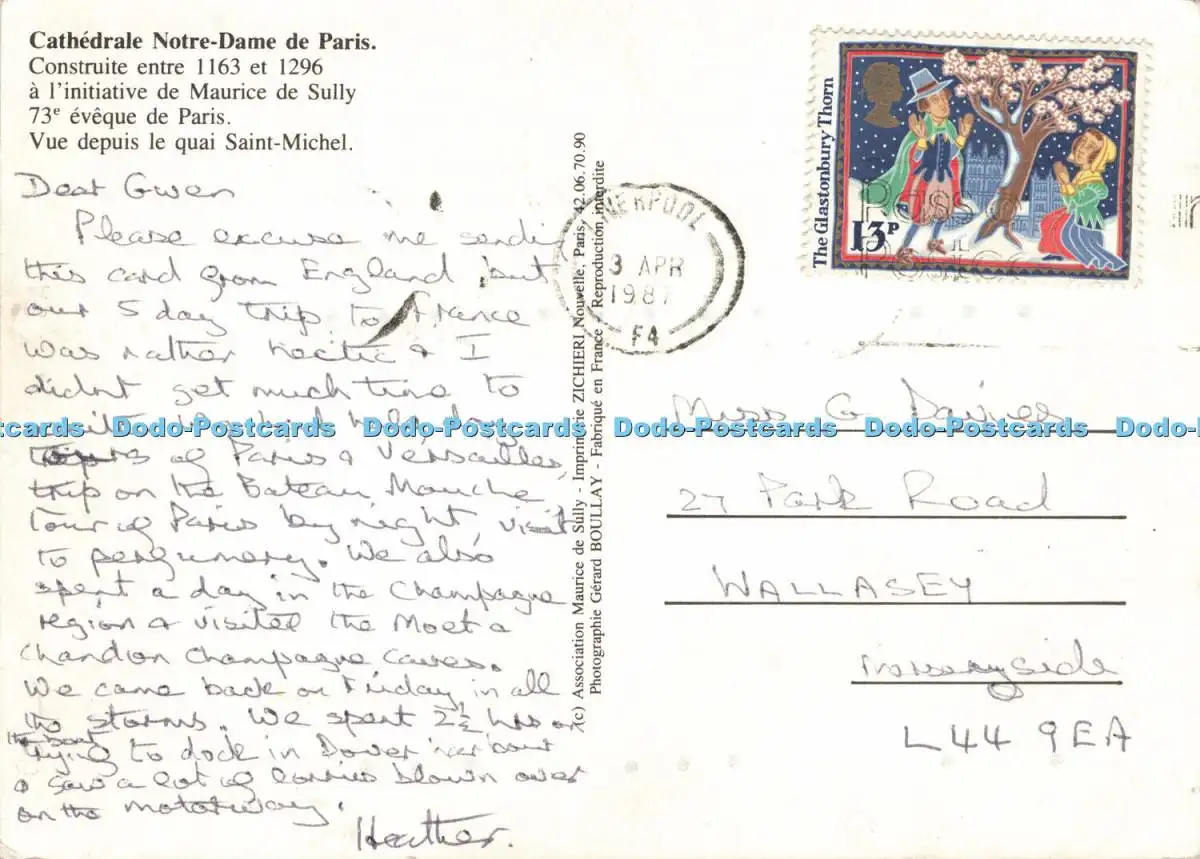 Cathédrale Notre-Dame de Paris.
Construite entre 1163 et 1296
à l'initiative de Maurice de Sully
73e évêque de Paris.
Vue depuis le quai Saint-Michel.
Dear Gwen
Please excuse me sendin
this card from England but
our 5 day trip to France
was rather hectic & I
didnt get much time to
had
of Paris & Versailles,
trip on the Bateau Mouche
Tour of Paris by night, visit
to perfumery. We also
spent a day in the Champagne
region & visited the Moet &
Chandon Champagne caves.
We came back on Friday in all
the storms. We spent 2½ hrs on
the boat
trying to dock in Dover harbour
& saw a lot of lorries blown over
on the motorway.
Heather.
(c) Association Maurice de Sully - Imprimerie ZICHIERI Nouvelle, Paris, 42.06.70.90
Photographie Gérard BOULLAY - Fabriqué en France - Reproduction interdite
ERPOOL
3 APR
1987
F4
The Glastonbury Thorn
13P
Miss G Davies
27 Park Road
WALLASEY
Merseyside
L44 9EA
tcards Dodo-Postcards Dodo-Postcards Dodo-Postcards Dodo-Postcards Dodo-